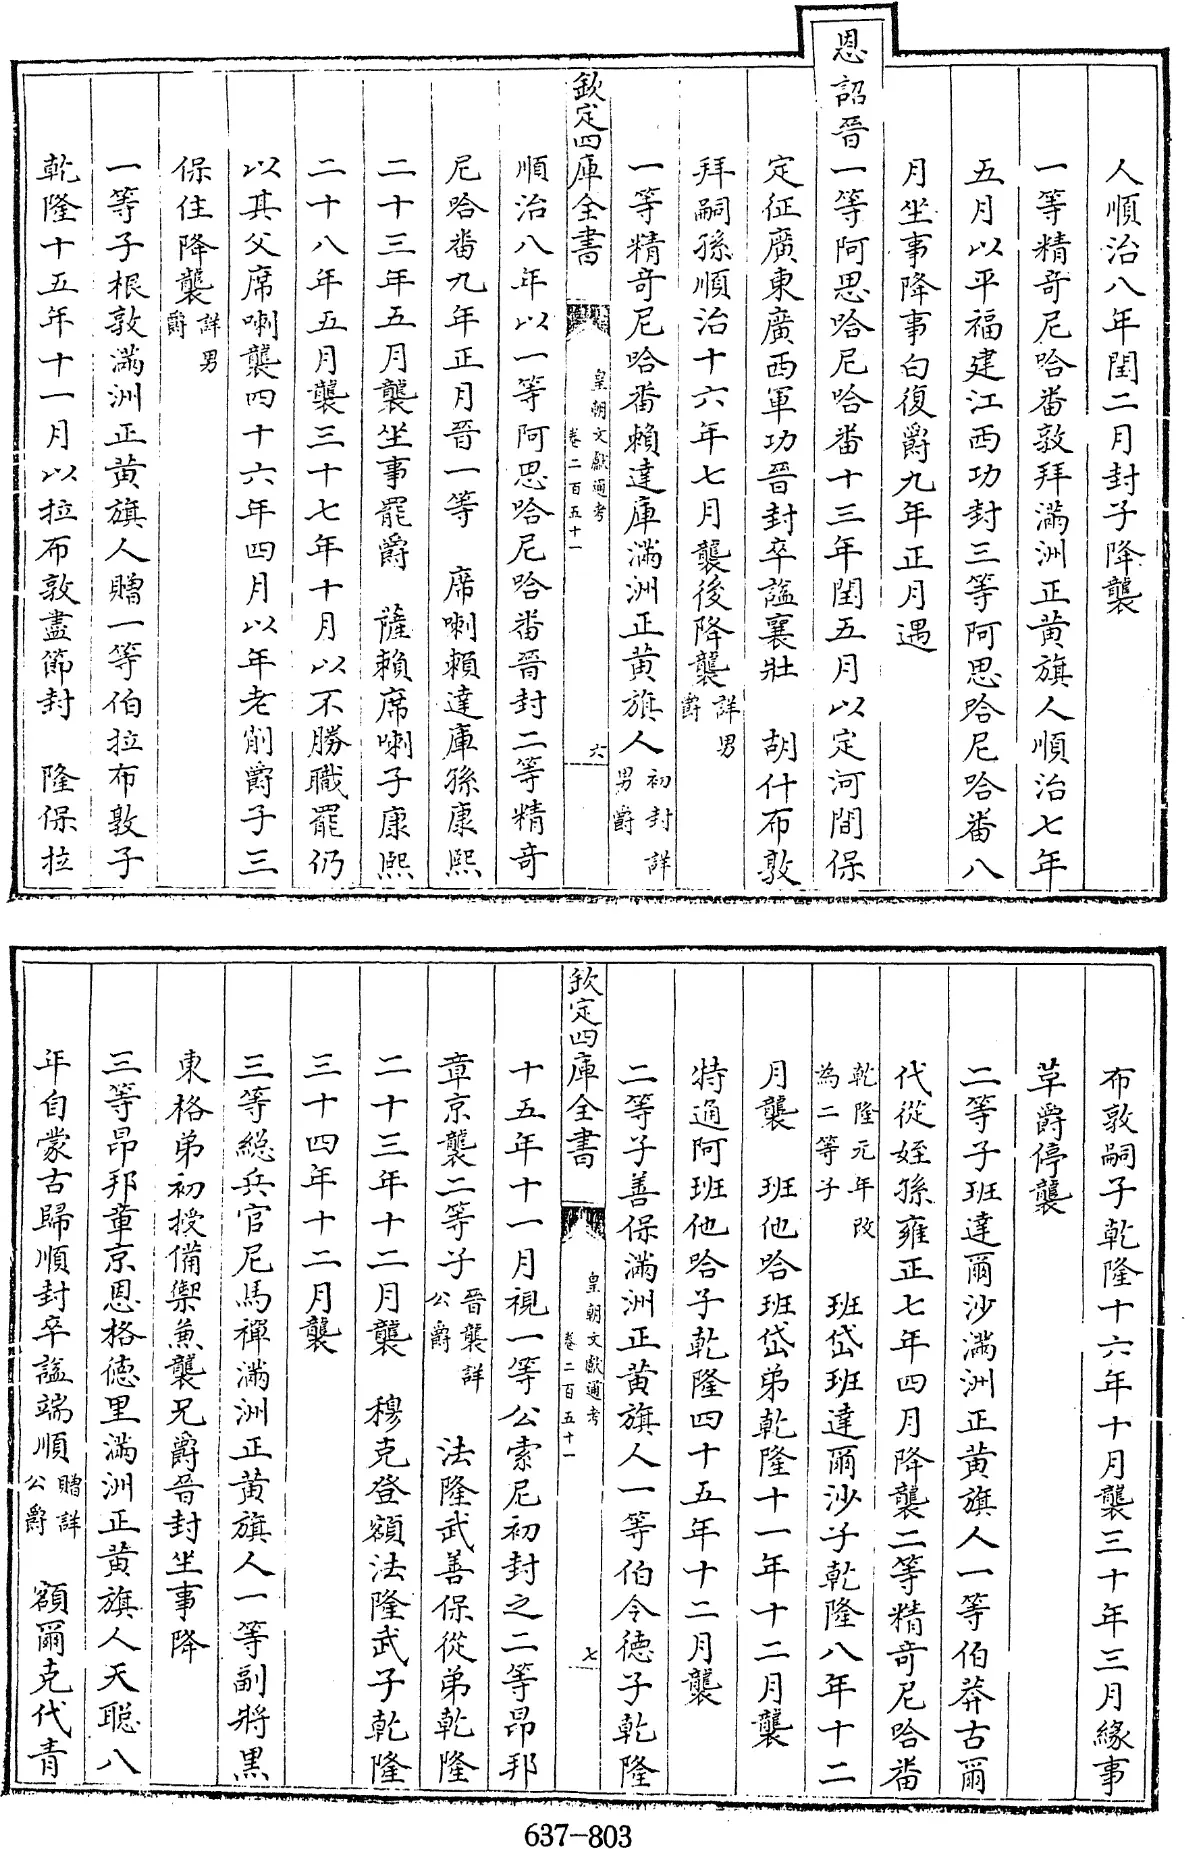 人順治八年閏二月封子降襲
一等精奇尼哈番敦拜滿洲正黃旗人順治七年
五月以平福建江西功封三等阿思哈尼哈番八
月坐事降事白復爵九年正月遇
恩詔晉一等阿思哈尼哈番十三年閏五月以定河間保
定征廣東廣西軍功晉封卒諡襄壯　胡什布敦
拜嗣孫順治十六年七月襲後降襲詳男爵
一等精奇尼哈番賴達庫滿洲正黃旗人初封詳男爵
欽定四庫全書　皇朝文獻通考卷二百五十一　六
順治八年以一等阿思哈尼哈番晉封二等精奇
尼哈番九年正月晉一等　席喇賴達庫孫康熙
二十三年五月襲坐事罷爵　薩賴席喇子康熙
二十八年五月襲三十七年十月以不勝職罷仍
以其父席喇襲四十六年四月以年老削爵子三
保住降襲詳男爵
一等子根敦滿洲正黃旗人贈一等伯拉布敦子
乾隆十五年十一月以拉布敦盡節封　隆保拉
布敦嗣子乾隆十六年十月襲三十年三月緣事
革爵停襲
二等子班達爾沙滿洲正黃旗人一等伯莽古爾
代從姪孫雍正七年四月降襲二等精奇尼哈番
乾隆元年改為二等子　班岱班達爾沙子乾隆八年十二
月襲　班他哈班岱弟乾隆十一年十二月襲
特通阿班他哈子乾隆四十五年十二月襲
二等子善保滿洲正黃旗人一等伯令德子乾隆
欽定四庫全書　皇朝文獻通考卷二百五十一　七
十五年十一月視一等公索尼初封之二等昂邦
章京襲二等子晉襲詳公爵　法隆武善保從弟乾隆
二十三年十二月襲　穆克登額法隆武子乾隆
三十四年十二月襲
三等總兵官尼馬禪滿洲正黃旗人一等副將黑
東格弟初授備禦兼襲兄爵晉封坐事降
三等昂邦章京恩格德里滿洲正黃旗人天聰八
年自蒙古歸順封卒諡端順贈詳公爵　額爾克代青
637-803